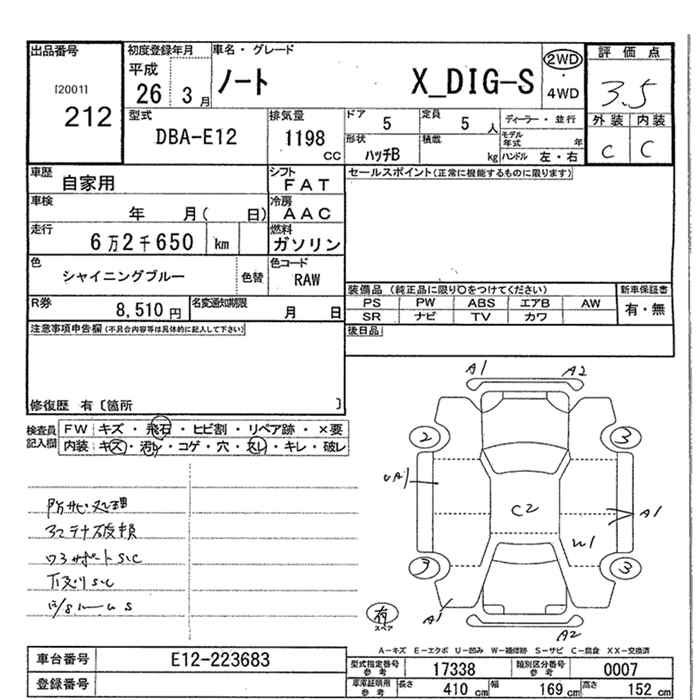 出品番号 初度登録年月 車名・グレード 評価点
[2001] 平成 ノート X_DIG-S 2WD ・ 4WD 3.5
212 26 3月
型式 排気量 ドア 定員 ディーラー・並行 外装 内装
DBA-E12 1198 CC 5 5人 モデル年式 年 C C
形状 積載 ハンドル 左・右
ハッチB kg
車歴 自家用 シフト FAT セールスポイント(正常に機能するものに限ります)
車検 年 月( 日) 冷房 AAC
走行 6万2千650 km 燃料 ガソリン
色 シャイニングブルー 色替 色コード RAW
装備品 (純正品に限り○をつけてください) 新車保証書
R券 8,510円 名変通知期限 月 日 PS PW ABS エアB AW 有・無
SR ナビ TV カワ
注意事項申告欄(不具合内容等は具体的に記入して下さい) 後日品
修復歴 有〔箇所 〕
検査員記入欄 FW キズ・飛石・ヒビ割・リペア跡・×要
内装: キズ・汚れ・コゲ・穴・スレ・キレ・破レ
A1 A2
2 3
UA1 C2 A1
W1
3 3
防サビ処理
下廻りSC
A1 有 スペア A2
A-キズ E-エクボ U-凹み W-補修跡 S-サビ C-腐食 XX-交換済
車台番号 E12-223683 型式指定番号 参考 17338 類別区分番号 参考 0007
登録番号 車庫証明用 参考 長さ 410 cm 幅 169 cm 高さ 152 cm